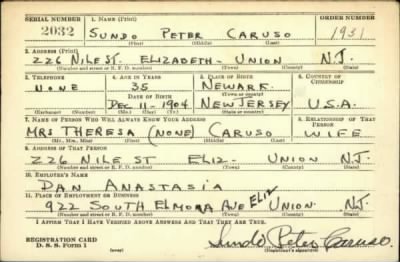 SERIAL NUMBER 1. NAME (Print) ORDER NUMBER
2032 SUNDO PETER CARUSO 1931
(First) (Middle) (Last)
2. ADDRESS (Print)
226 NILE ST. ELIZABETH - UNION N.J.
(Number and street or R. F. D. number) (Town) (County) (State)
3. TELEPHONE 4. AGE IN YEARS 5. PLACE OF BIRTH 6. COUNTRY OF CITIZENSHIP
NONE 35 NEWARK
DATE OF BIRTH (Town or county)
DEC 11 - 1904 NEW JERSEY U.S.A.
(Exchange) (Number) (Mo.) (Day) (Yr.) (State or country)
7. NAME OF PERSON WHO WILL ALWAYS KNOW YOUR ADDRESS 8. RELATIONSHIP OF THAT PERSON
MRS THERESA (NONE) CARUSO WIFE
(Mr., Mrs., Miss) (First) (Middle) (Last)
9. ADDRESS OF THAT PERSON
226 NILE ST ELIZ - UNION N.J.
(Number and street or R. F. D. number) (Town) (County) (State)
10. EMPLOYER'S NAME
DAN ANASTASIA
11. PLACE OF EMPLOYMENT OR BUSINESS
922 SOUTH ELMORA AVE ELIZ UNION N.J.
(Number and street or R. F. D. number) (Town) (County) (State)
I AFFIRM THAT I HAVE VERIFIED ABOVE ANSWERS AND THAT THEY ARE TRUE.
REGISTRATION CARD
D. S. S. Form 1 (over) Sundo Peter Caruso
(Registrant's signature)